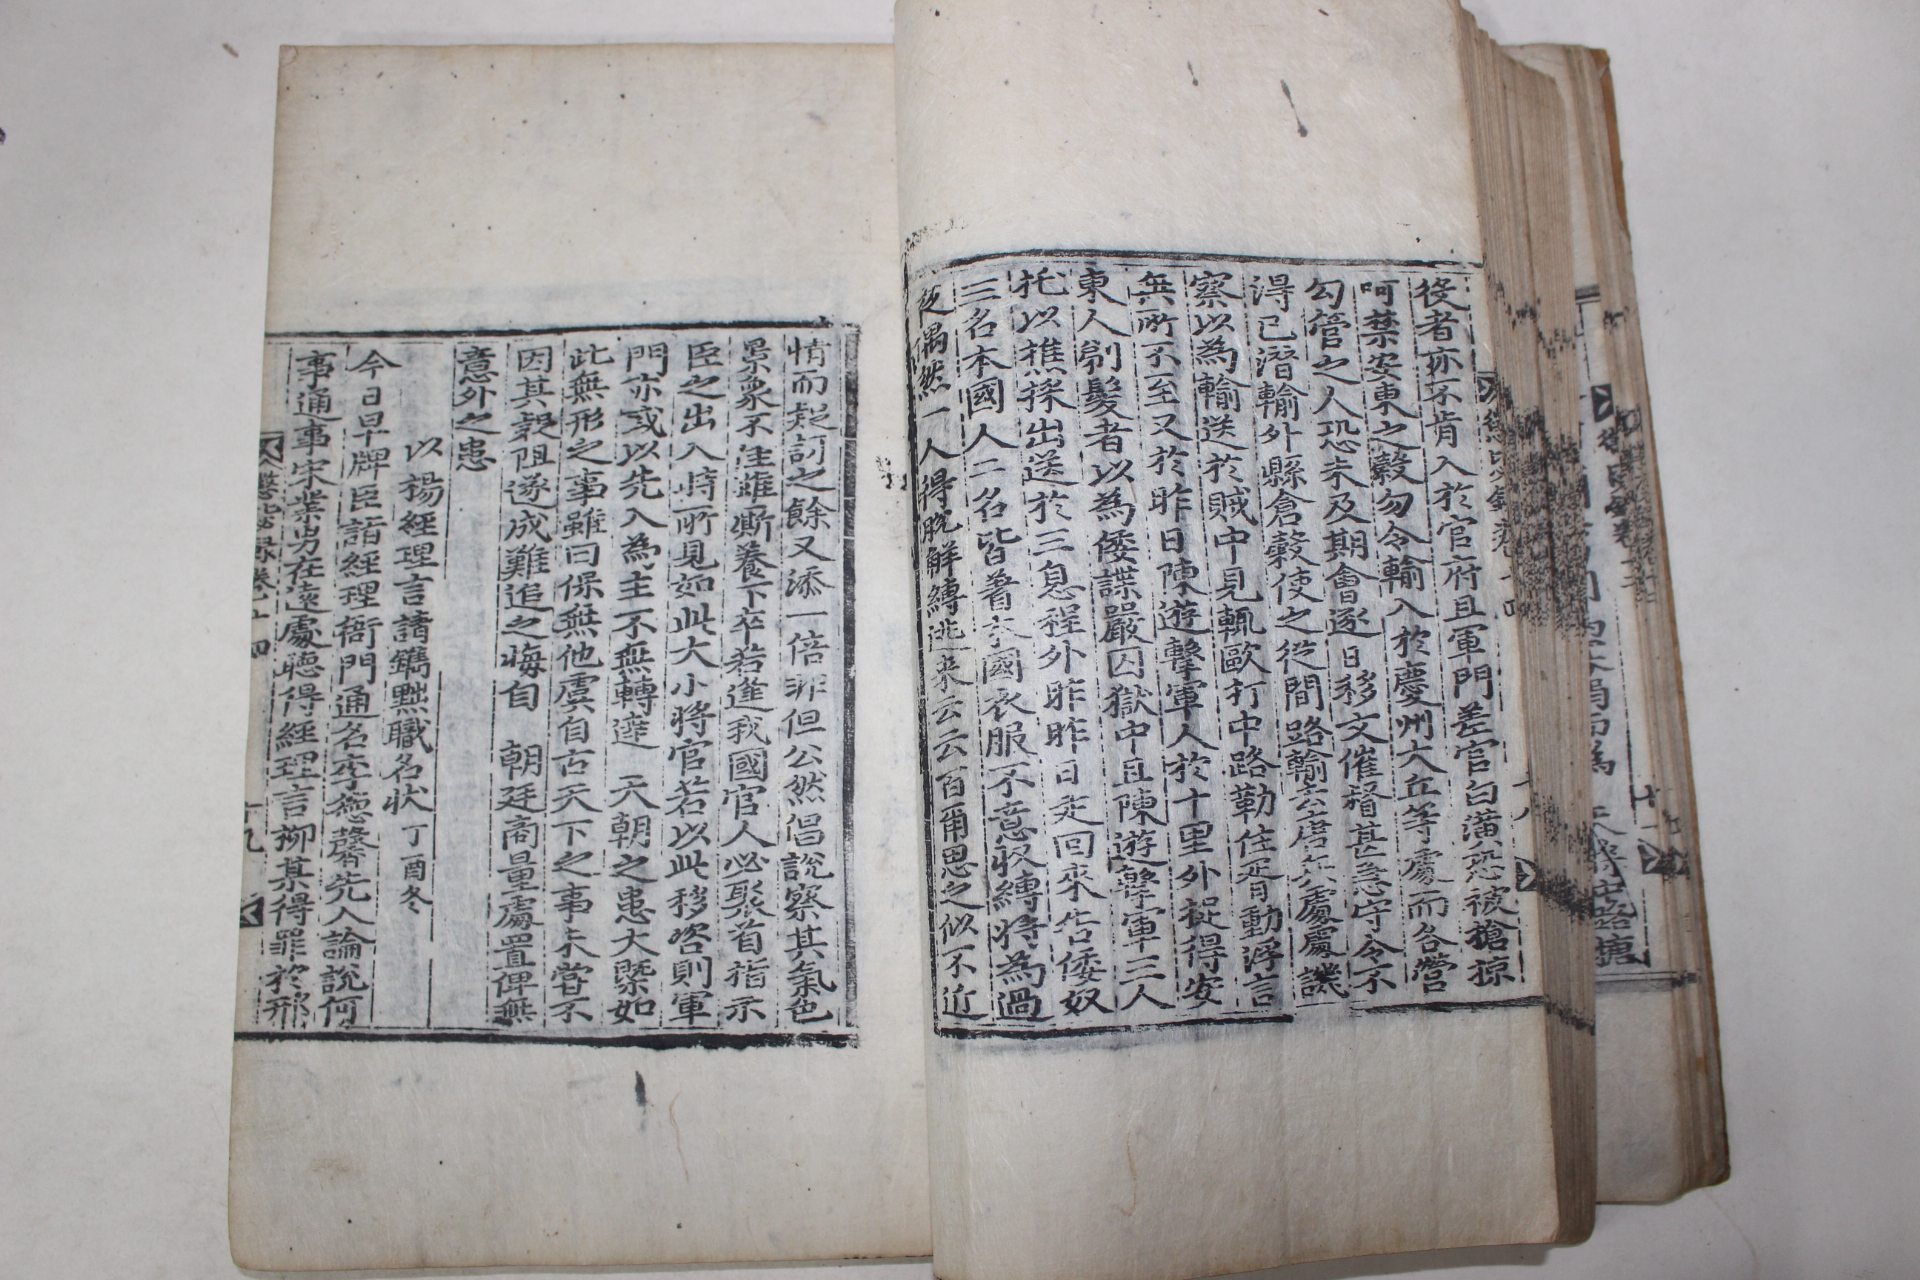 役者亦不肯入於官府且軍門差官白潢恐被搶掠
呵禁安東之穀勿令輸入於慶州大丘等處而各營
勾管之人恐未及期會逐日移文催督甚急守令不
得已潛輸外縣倉穀使之從間路輸去唐兵處處譏
察以為輸送於賊中見輒歐打中路勒住胥動浮言
無所不至又於昨日陳遊擊軍人於十里外捉得安
東人剃髮者以為倭諜嚴囚獄中且陳遊擊軍三人
托以樵採出送於三息程外昨昨日走回來告倭奴
三名本國人二名皆著本國衣服不意収縛將為過
偶然一人得脫解縛逃來云云百爾思之似不近
情而起訂之餘又添一倍非但公然倡說察其氣色
景象不佳雖厮養下卒若逢我國官人必聚首指示
臣之出入時所見如此大小將官若以此移咨則軍
門亦或以先入為主不無轉達 天朝之患大槩如
此無形之事雖曰保無他虞自古天下之事未嘗不
因其疑阻遂成難追之悔自 朝廷商量處置俾無
意外之患
以楊經理言請鐫黜職名狀 丁酉冬
今日早牌臣詣經理衙門通名李德馨先入論說何
事通事宋業男在遠處聽得經理言柳某得罪於邢
懲毖録卷十四
十九